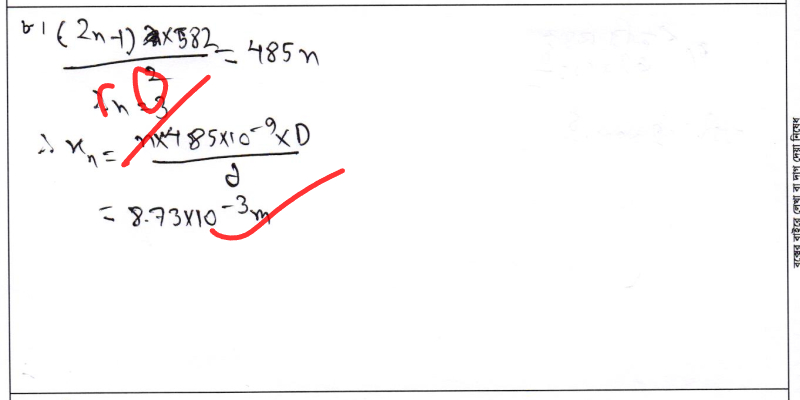 ৮। (2n-1) × 582 / 2 = 485n
∴ n = 3
∴ xₙ = n×485×10⁻⁹×D / d
= 8.73×10⁻³m
বক্সের বাইরে লেখা বা দাগ দেয়া নিষেধ